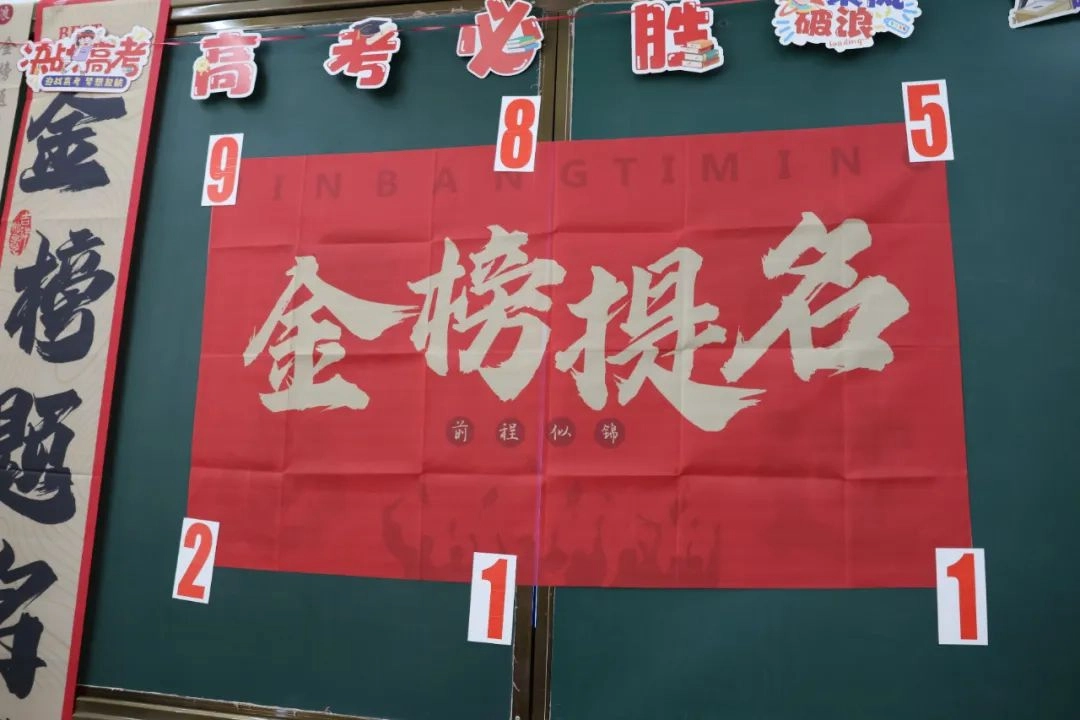 决战高考
高考必胜
破浪
loading
9 8 5
INBANGTIMIN
金榜提名
前程似锦
2 1 1
金榜题名